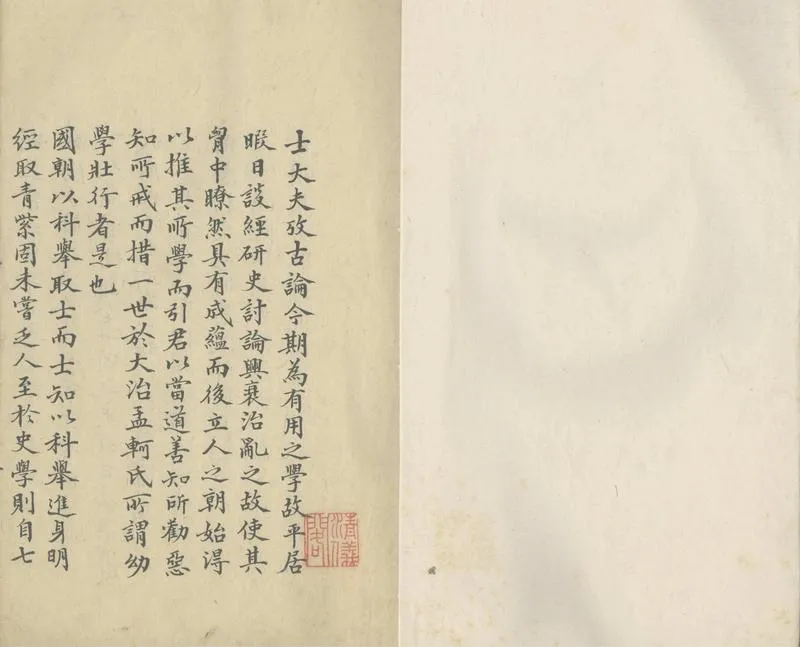 士大夫攷古論今期為有用之學故平居
暇日談經研史討論興衰治亂之故使其
胷中瞭然具有成蘊而後立人之朝始得
以推其所學而引君以當道善知所勸惡
知所戒而措一世於大治孟軻氏所謂幼
學壯行者是也
國朝以科舉取士而士知以科舉進身明
經取青紫固未嘗乏人至於史學則自七
清義閣